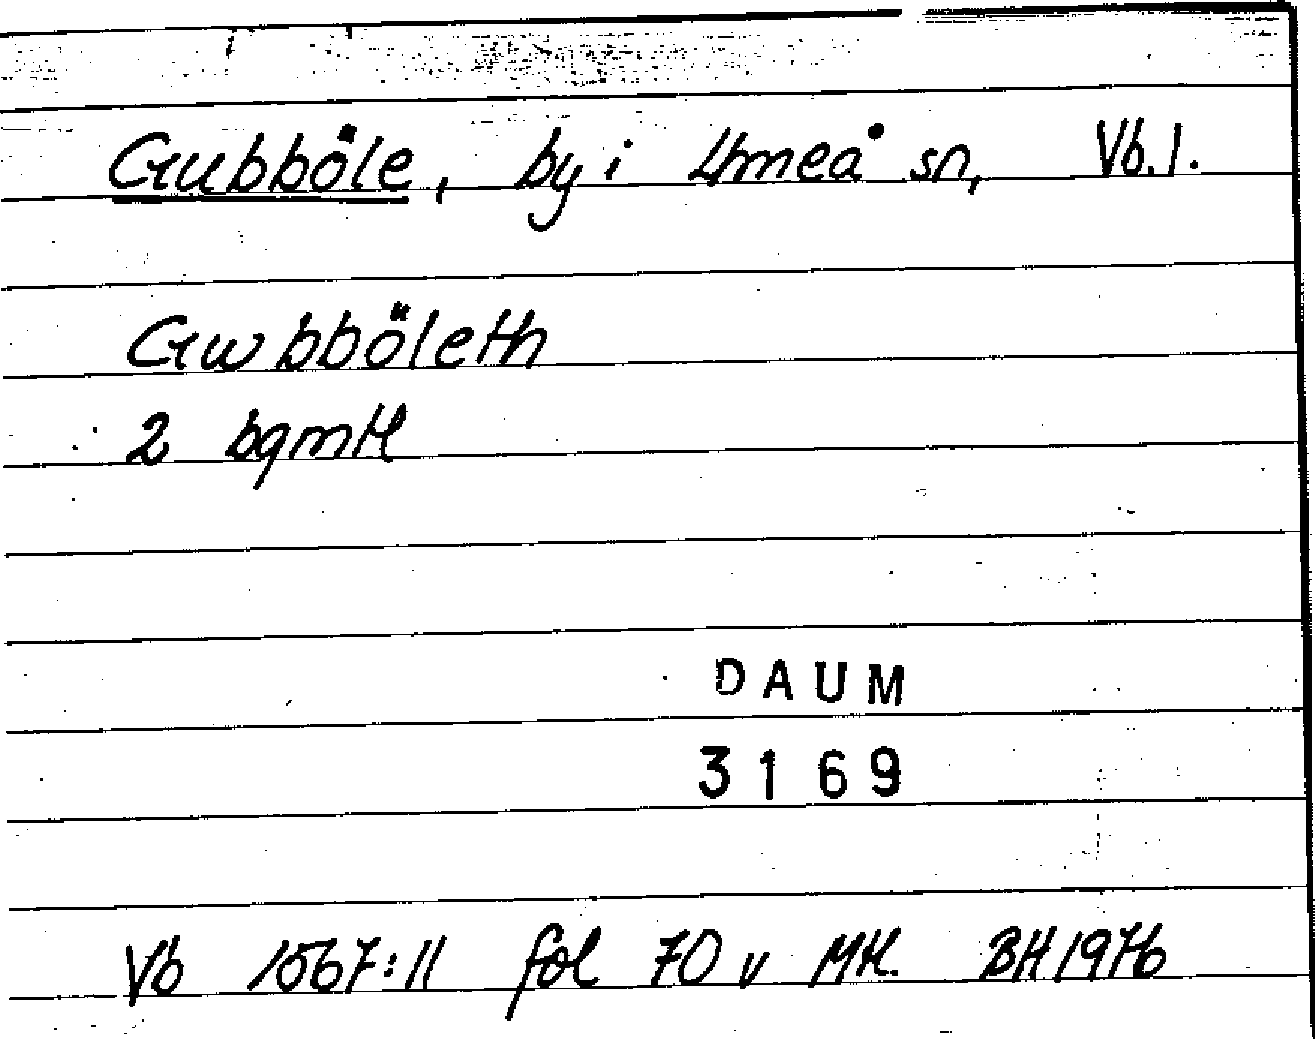 Gubböle, by i Umeå sn, Vb. l.
Gwbböleth
2 bgmtl
DAUM
3169
Vb 1567:11 fol 70 v MH. BH 1976